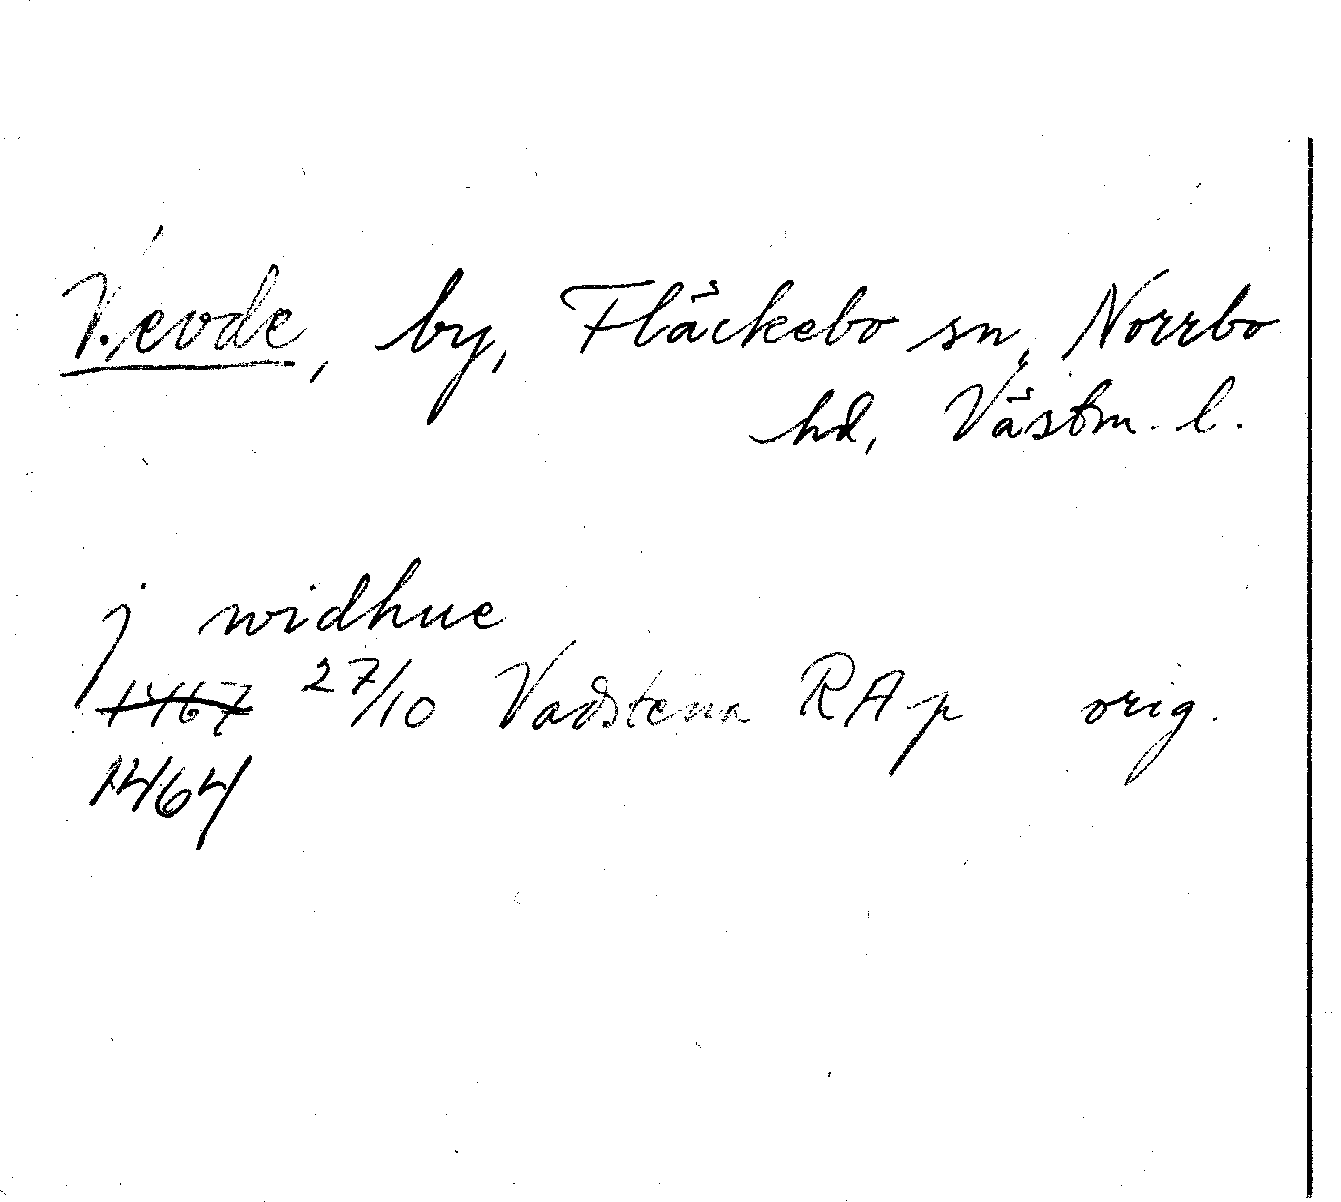 Vevde, by, Fläckebo sn, Norrbo
hd, Västm. l.
j widhue
1467 27/10 Vadstena RAp orig.
1464